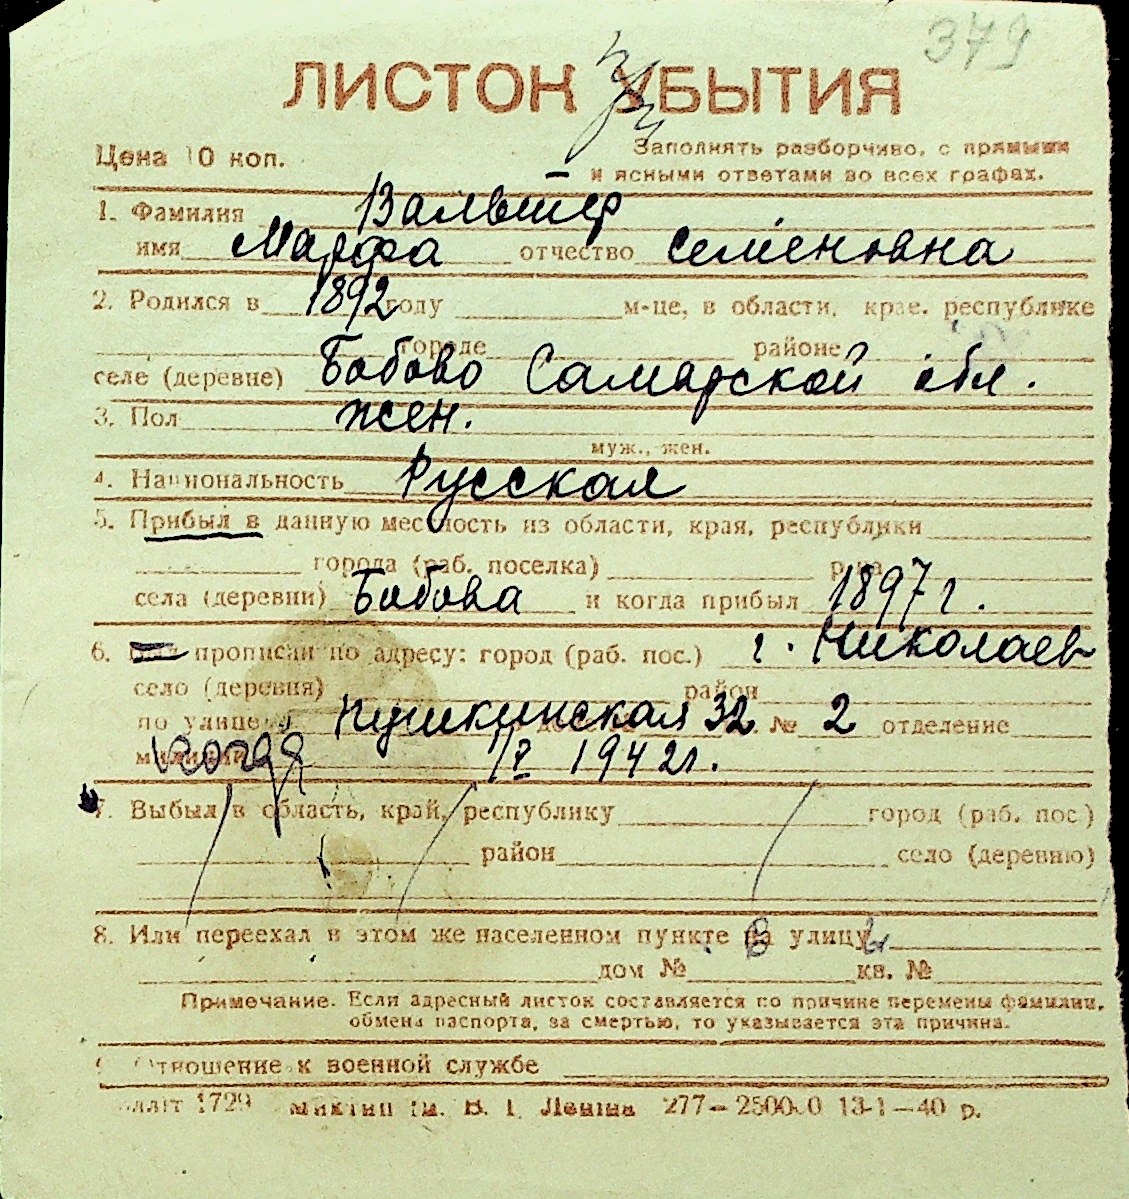 379
ЛИСТОК УБЫТИЯ
Цена 10 коп.
Заполнять разборчиво, с прямыми
и ясными ответами во всех графах.
1. Фамилия Вальтер
имя Марфа отчество Семеновна
2. Родился в 1892 году м-це, в области, крае, республике
городе районе
селе (деревне) Бобово Самарской обл.
3. Пол жен.
муж., жен.
4. Национальность Русская
5. Прибыл в данную местность из области, края, республики
города (раб. поселка) р-на
села (деревни) Бобова и когда прибыл 1897 г.
6. прописан по адресу: город (раб. пос.) г. Николаев
село (деревня) район
по улице Пушкинская 32 № 2 отделение
милиции когда 1942 г.
7. Выбыл в область, край, республику город (раб. пос.)
район село (деревню)
8. Или переехал в этом же населенном пункте на улицу
дом № кв. №
Примечание. Если адресный листок составляется по причине перемены фамилии,
обмена паспорта, за смертью, то указывается эта причина.
Отношение к военной службе
1729 им. В. І. Леніна 277—25000 13-1—40 р.